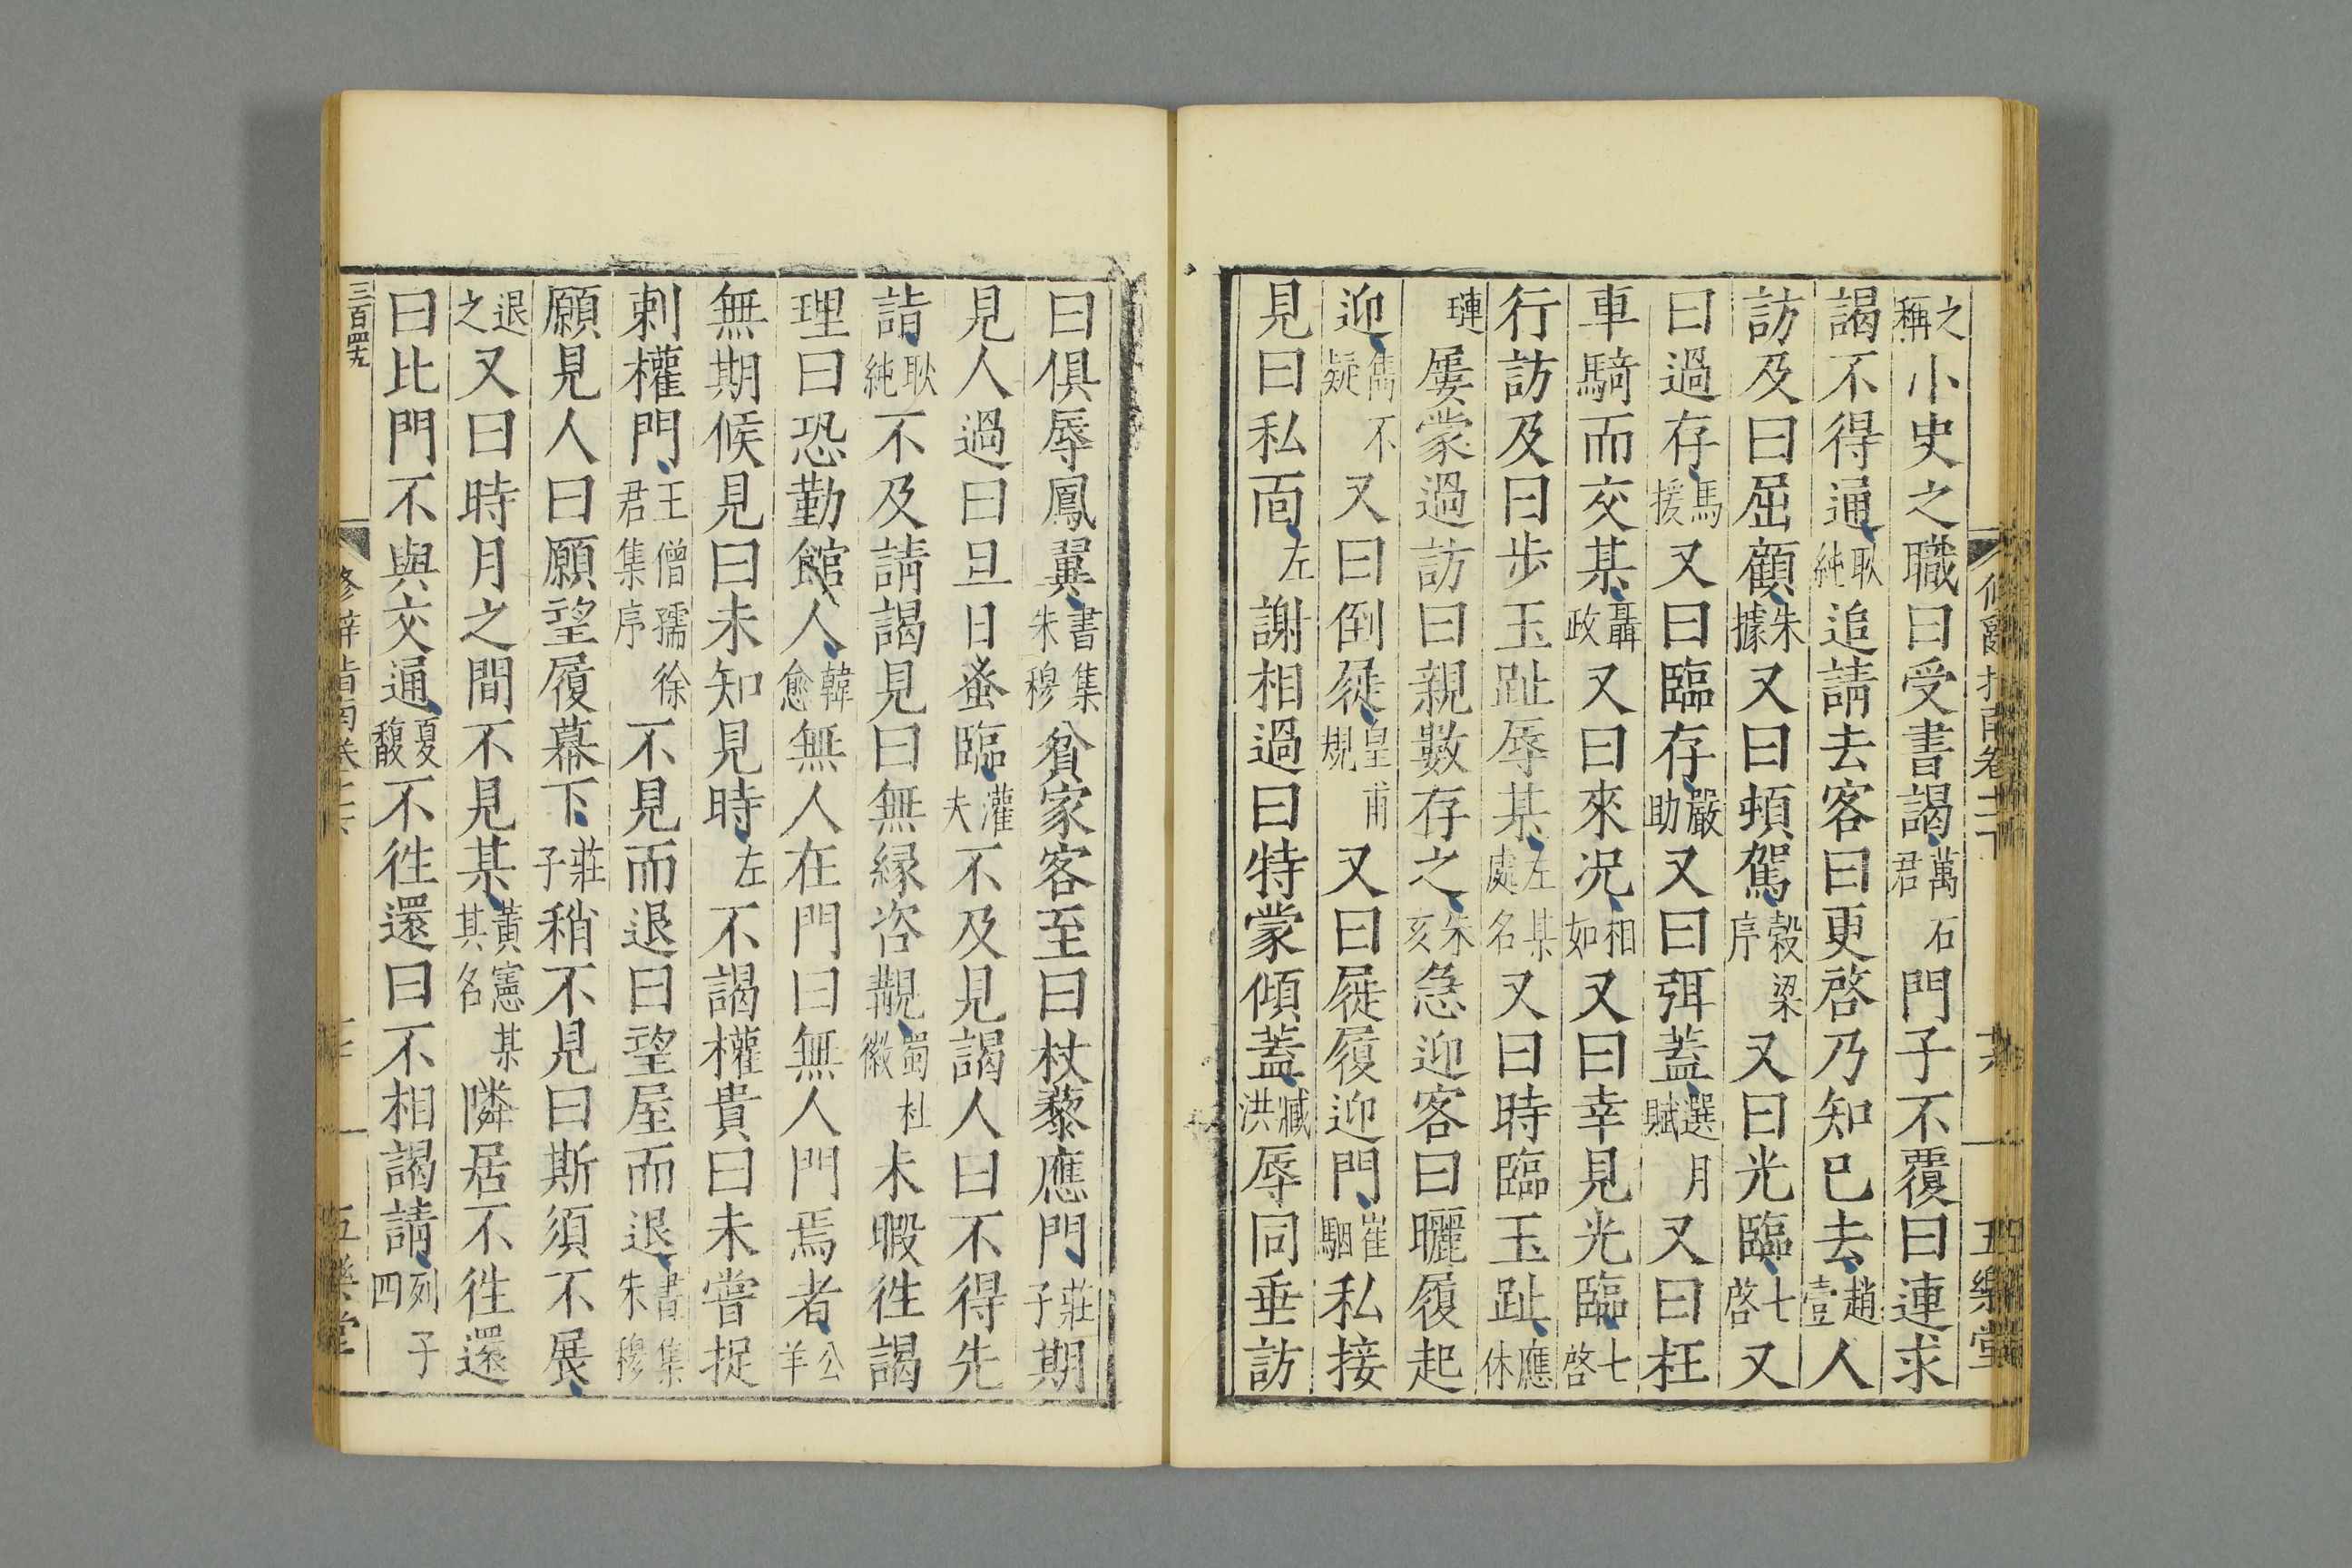 之稱小史之職曰受書謁萬石君門子不覆曰連求
謁不得通耿純追請去客曰更啓乃知已去趙壹人
訪及曰屈顧朱據又曰頓駕穀梁序又曰光臨七啓又
曰過存馬援又曰臨存嚴助又曰弭蓋選月賦又曰枉
車騎而交某聶政又曰來况相如又曰幸見光臨七啓
行訪及曰步玉趾辱某左某處名又曰時臨玉趾應休
璉屢蒙過訪曰親數存之朱亥急迎客曰曬履起
迎雋不疑又曰倒屣皇甫規又曰屣履迎門崔駰私接
見曰私面左謝相過曰特蒙傾蓋臧洪辱同垂訪
曰俱辱鳳翼書集朱穆貧家客至曰杖藜應門莊子期
見人過曰旦日蚤臨灌夫不及見謁人曰不得先
詣耿純不及請謁見曰無緣咨覯蜀杜微未暇徃謁
理曰恐勤館人韓愈無人在門曰無人門焉者公羊
無期候見曰未知見時左不謁權貴曰未嘗捉
刺權門王僧孺徐君集序不見而退曰望屋而退書集朱穆
願見人曰願望履幕下莊子稍不見曰斯須不展
退之又曰時月之間不見某黃憲某其名隣居不徃還
曰比門不與交通夏馥不徃還曰不相謁請列子四
三百四十九